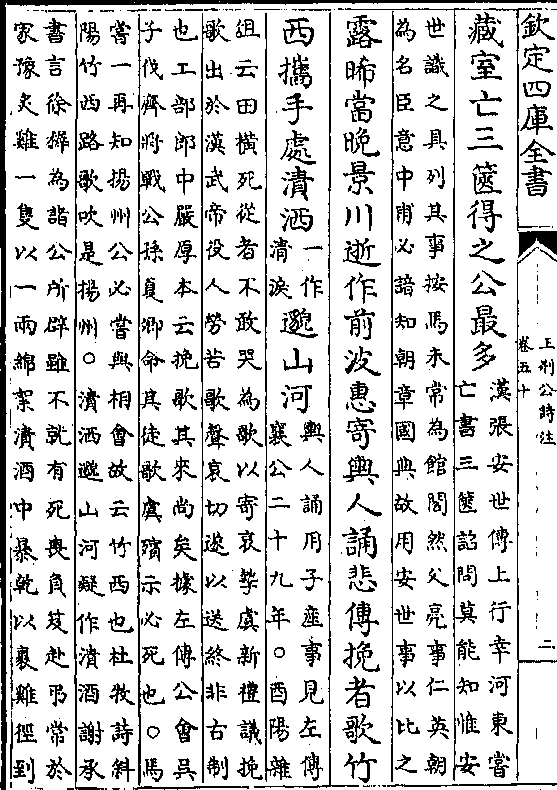 欽定四庫全書
王荆公詩注
卷五十
二
藏室亡三篋得之公最多
漢張安世傳上行幸河東嘗
亡書三篋詔問莫能知惟安
世識之具列其事按馬未常為館閣然父亮事仁英朝
為名臣意中甫必諳知朝章國典故用安世事以比之
露晞當晚景川逝作前波惠寄輿人誦悲傳挽者歌竹
西攜手處漬洒
一作
清淚
邈山河
輿人誦用子產事見左傳
襄公二十九年○酉陽雜
俎云田橫死從者不敢哭為歌以寄哀摯虞新禮議挽
歌出於漢武帝役人勞苦歌聲哀切遂以送終非古制
也工部郎中嚴厚本云挽歌其來尚矣據左傳公會吳
子伐齊將戰公孫夏卿命其徒歌虞殯示必死也○馬
嘗一再知揚州公必嘗與相會故云竹西也杜牧詩斜
陽竹西路歌吹是揚州○漬洒邈山河疑作漬酒謝承
書言徐穉為諸公所辟雖不就有死喪負笈赴弔常於
家豫炙雞一隻以一兩綿絮漬酒中暴乾以裹雞徑到